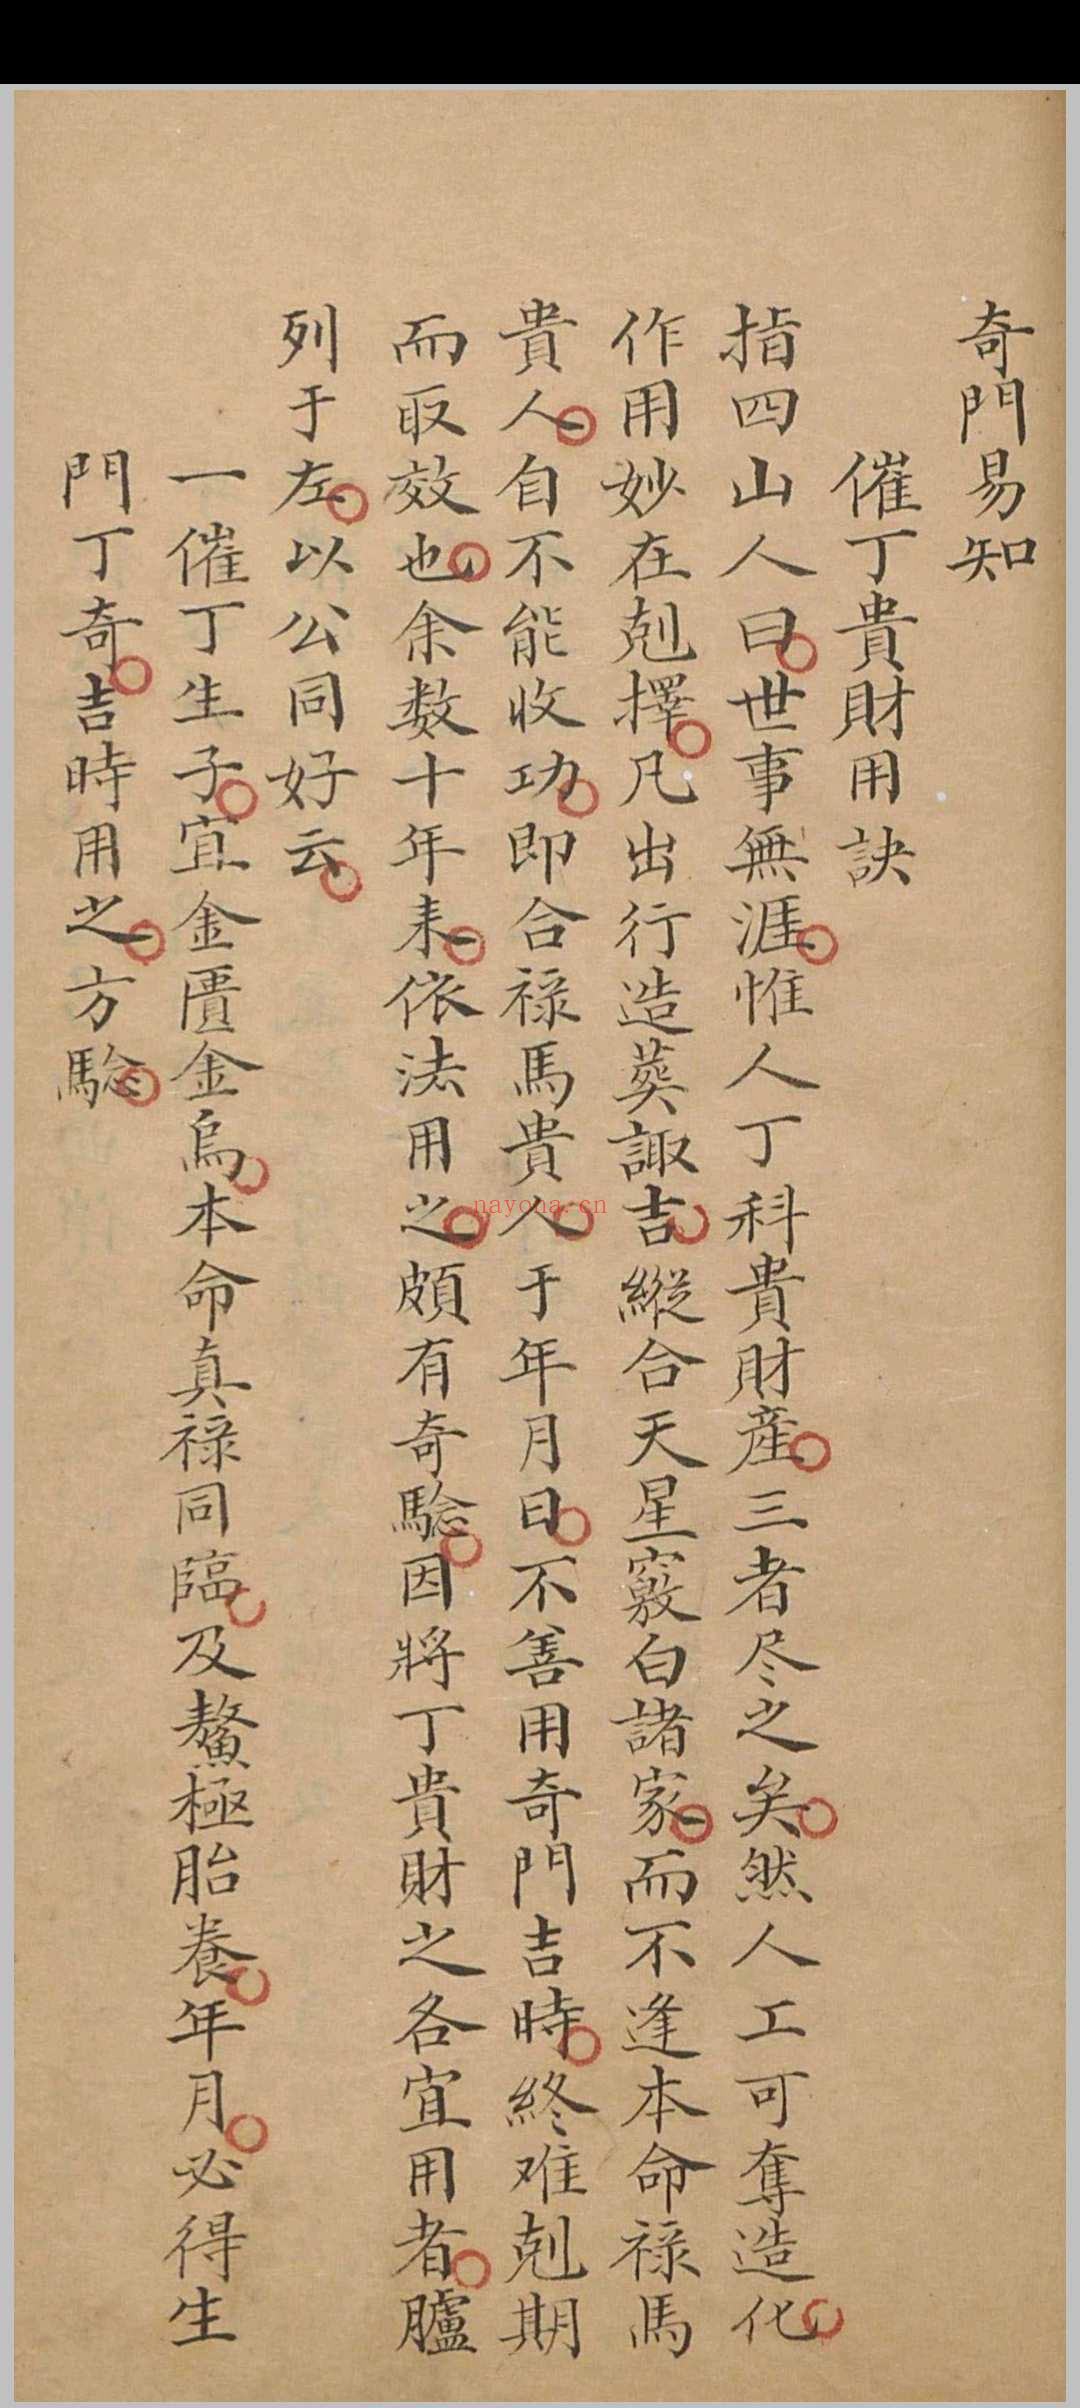 奇門易知
催丁貴財用訣
指四山人曰世事無涯惟人丁科貴財産三者尽之矣然人工可奪造化
作用妙在剋擇凡出行造葬諏吉縱合天星竅白諸家而不逢本命禄馬
貴人自不能收功即合禄馬貴人于年月日不善用奇門吉時終难剋期
而取效也余数十年来依法用之頗有奇騐因將丁貴財之各宜用者臚
列于左以公同好云
一催丁生子宜金匱金烏本命真禄同臨及鰲極胎養年月必得生
門丁奇吉時用之方騐
nayona.cn